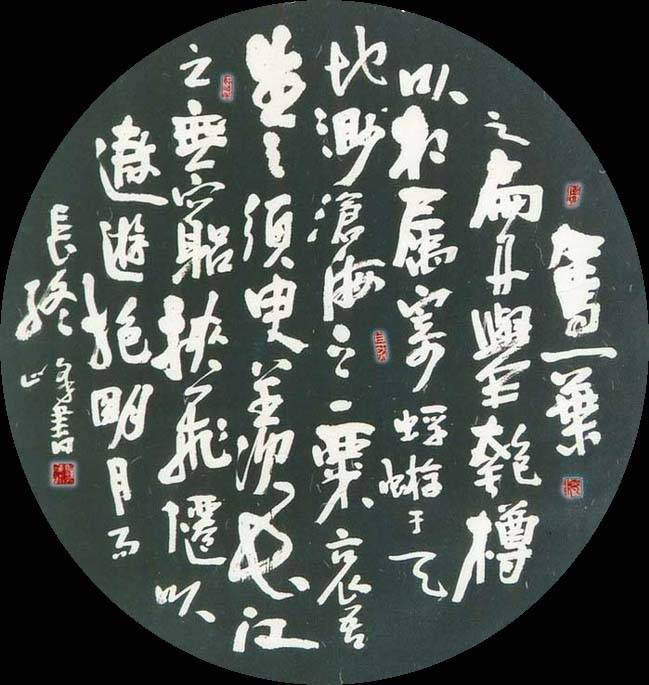 駕一葉
之扁舟舉匏樽
以相屬寄蜉蝣于天
地渺滄海之一粟哀吾
生之須臾羨長江
之無窮挾飛僊以
遨遊抱明月而
長終